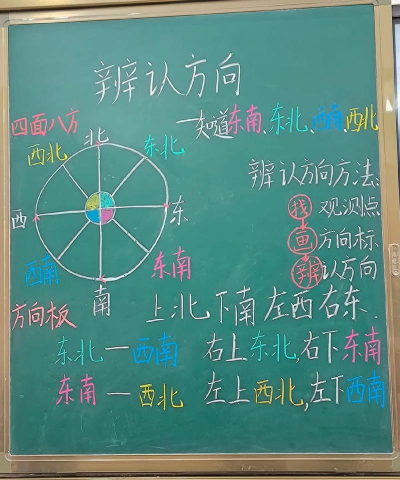 辨认方向
四面八方
一知道东南、东北、西南、西北
北
西北
东北
西
东
西南
东南
南
方向板
辨认方向方法:
找 观测点
画 方向标
辨 认方向
上北下南左西右东.
东北—西南 右上东北,右下东南
东南—西北 左上西北,左下西南